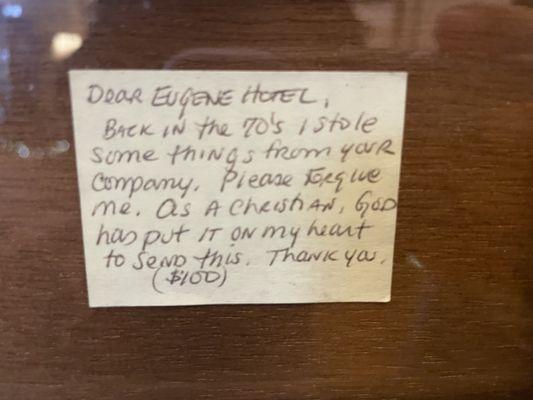 Dear Eugene Hotel,
Back in the 70's I stole
some things from your
company. Please forgive
me. As a Christian, God
has put it on my heart
to send this. Thank you.
($100)